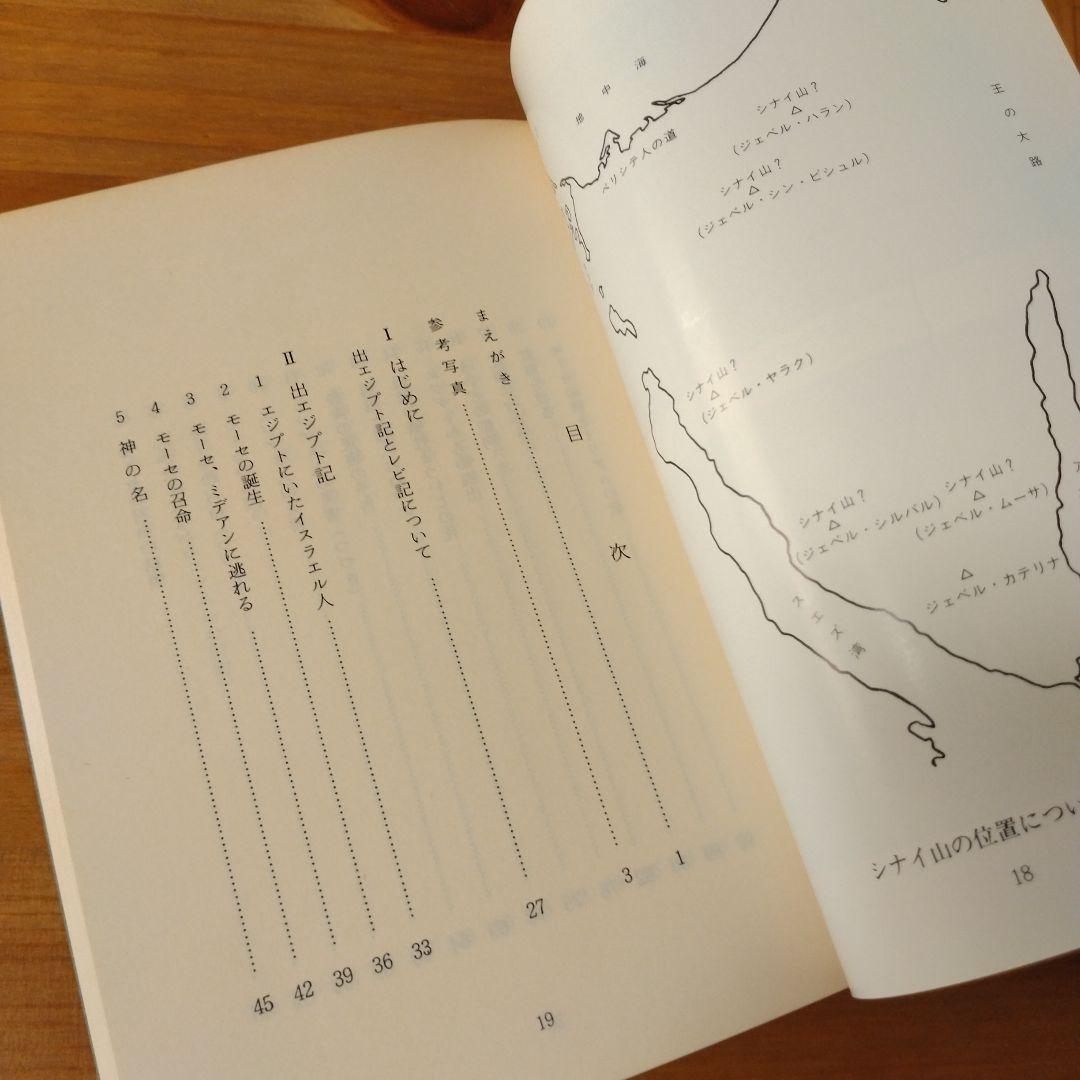 地中海
ペリシテ人の道
王の大路
シナイ山?
(ジェベル・ハラン)
シナイ山?
(ジェベル・シン・ビシュル)
シナイ山?
(ジェベル・ヤラク)
シナイ山?
(ジェベル・シルバル)
シナイ山?
(ジェベル・ムーサ)
ジェベル・カテリナ
スエズ湾
シナイ山の位置につい
18
目次
まえがき……………1
参考写真……………3
Ⅰ はじめに
出エジプト記とレビ記について……………27
Ⅱ 出エジプト記
1 エジプトにいたイスラエル人……………33
2 モーセの誕生……………36
3 モーセ、ミデアンに逃れる……………39
4 モーセの召命……………42
5 神の名……………45
19